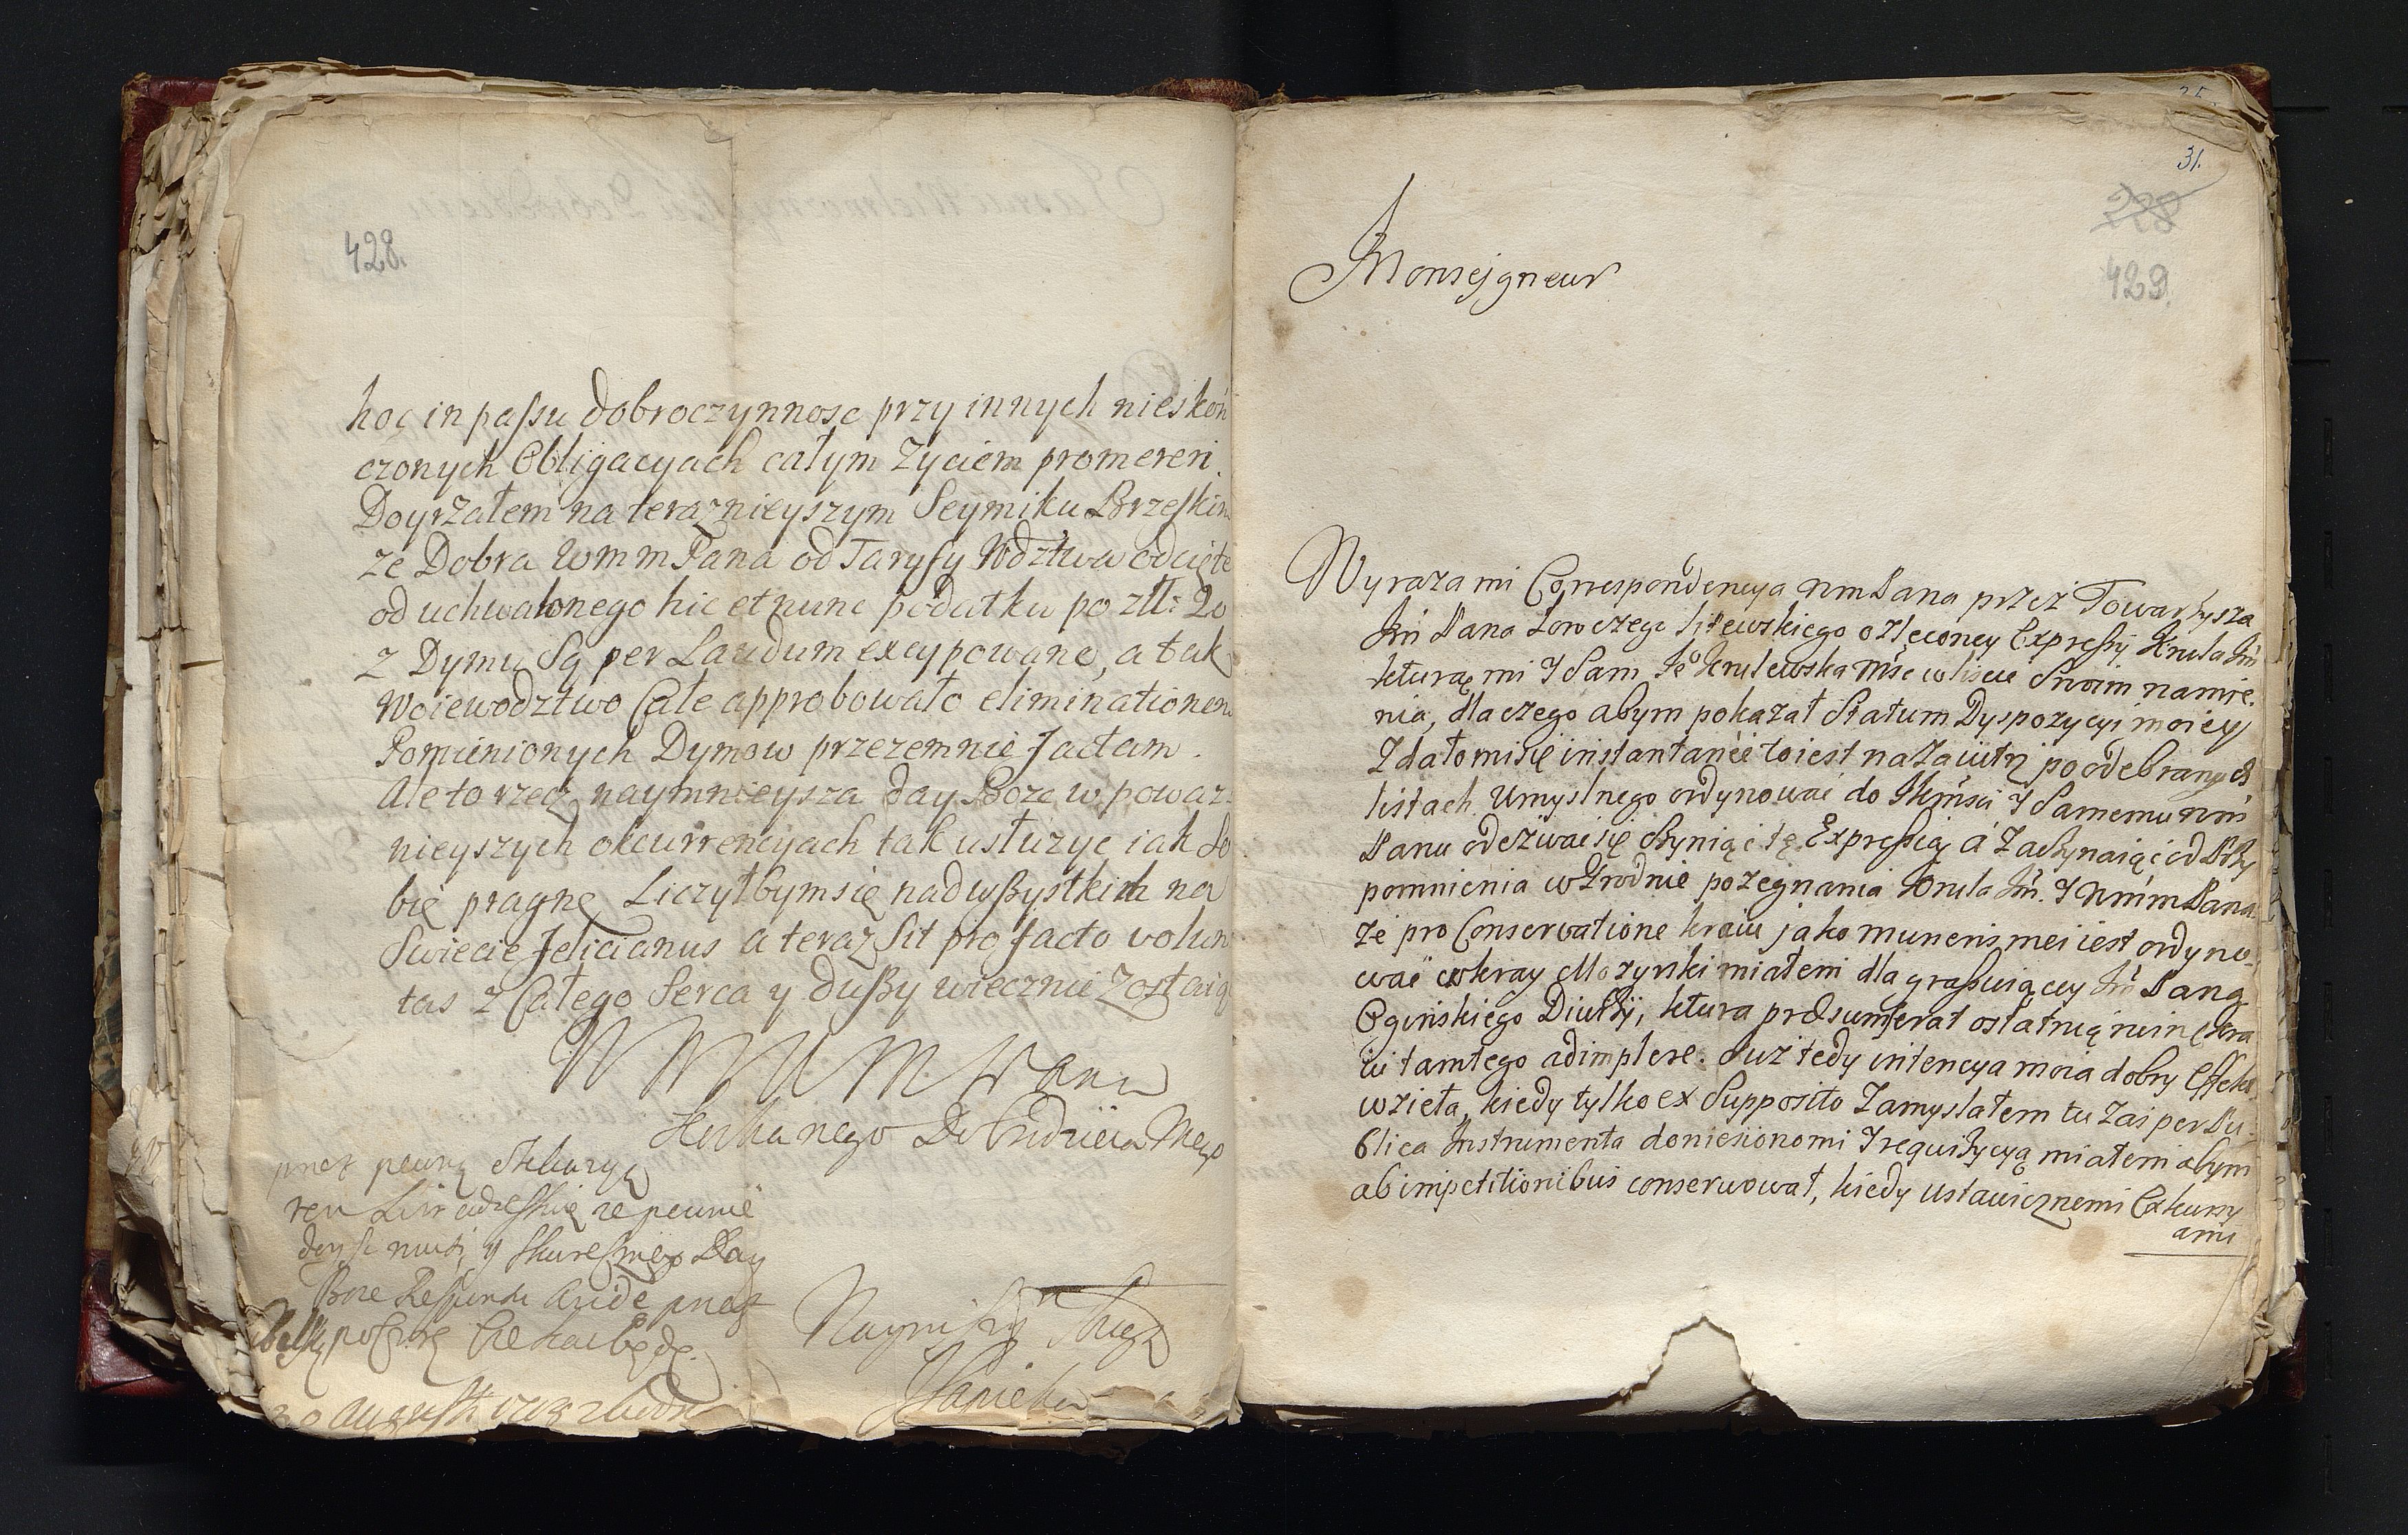 428.
hoc in passu dobroczynnosc przy innych nieskoń
czonych Obligacyach całym Zyciem promereri.
Doyrzałem na teraznieyszym Seymiku Brzeskim
ze Dobra WmmPana od Taryfy Wdztwa odcięte
od uchwalonego hic et nunc podatku po zł: 20
z Dymu Są per Laudum excypowane, a tak
Woiewodztwo Całe approbowało eliminationem
Pomienionych Dymow przezemnie factam.
Ale to rzecz naymnieysza day Boze w powaz-
nieyszych okcurrencyach tak usłuzyc iak So
bie pragnę Liczyłbym się nad wszystkich na
Swiecie felicianus a teraz Sit pro facto volun
tas z Całego Serca y duszy wiecznie Zostaię
W M M M Pana
przez pewną
day Boze
30 Augusti 1703
Nayniszy Sługa
JSapieha
31.
228
429.
Monsejgneur
Wyraza mi Correspondencya WmPana przez Towarzysza
Jm Pana Łowczego Litewskiego o zleconey Expressij Krula Jm
kturą mi J Sam Je° Krulewska Msc w liscie Swoim namie-
nia, dla czego abym pokazał Statum Dyspozycyi moiey
Zdało mi się instantanee to iest na Zaiutrz po odebranych
listach Umyslnego ordynowac do Jkmsci J Samemu Wm
Panu odezwac się czyniąc tę Expressią a Zaczynaiąc od Przy
pomnienia w Grodnie pozegnania Krula Jm. J WmmPana
ze pro Conservatione kraiu jako muneris mei iest ordyno-
wac w kray Mozyrski miałem dla grassuiącey Jm Pana
Oginskiego Diwizij, ktura præsumserat ostatnią ruinę kra
iu tamtego adimplere. Juz tedy intencya moia dobry Effekt
wzieła, kiedy tylko ex Supposito Zamyslałem tu Zas per Pu-
blica Instrumenta doniesiono mi J requizycyą miałem abym
ab impetitionibus conserwował, kiedy ustawicznemi Exkursy
ami